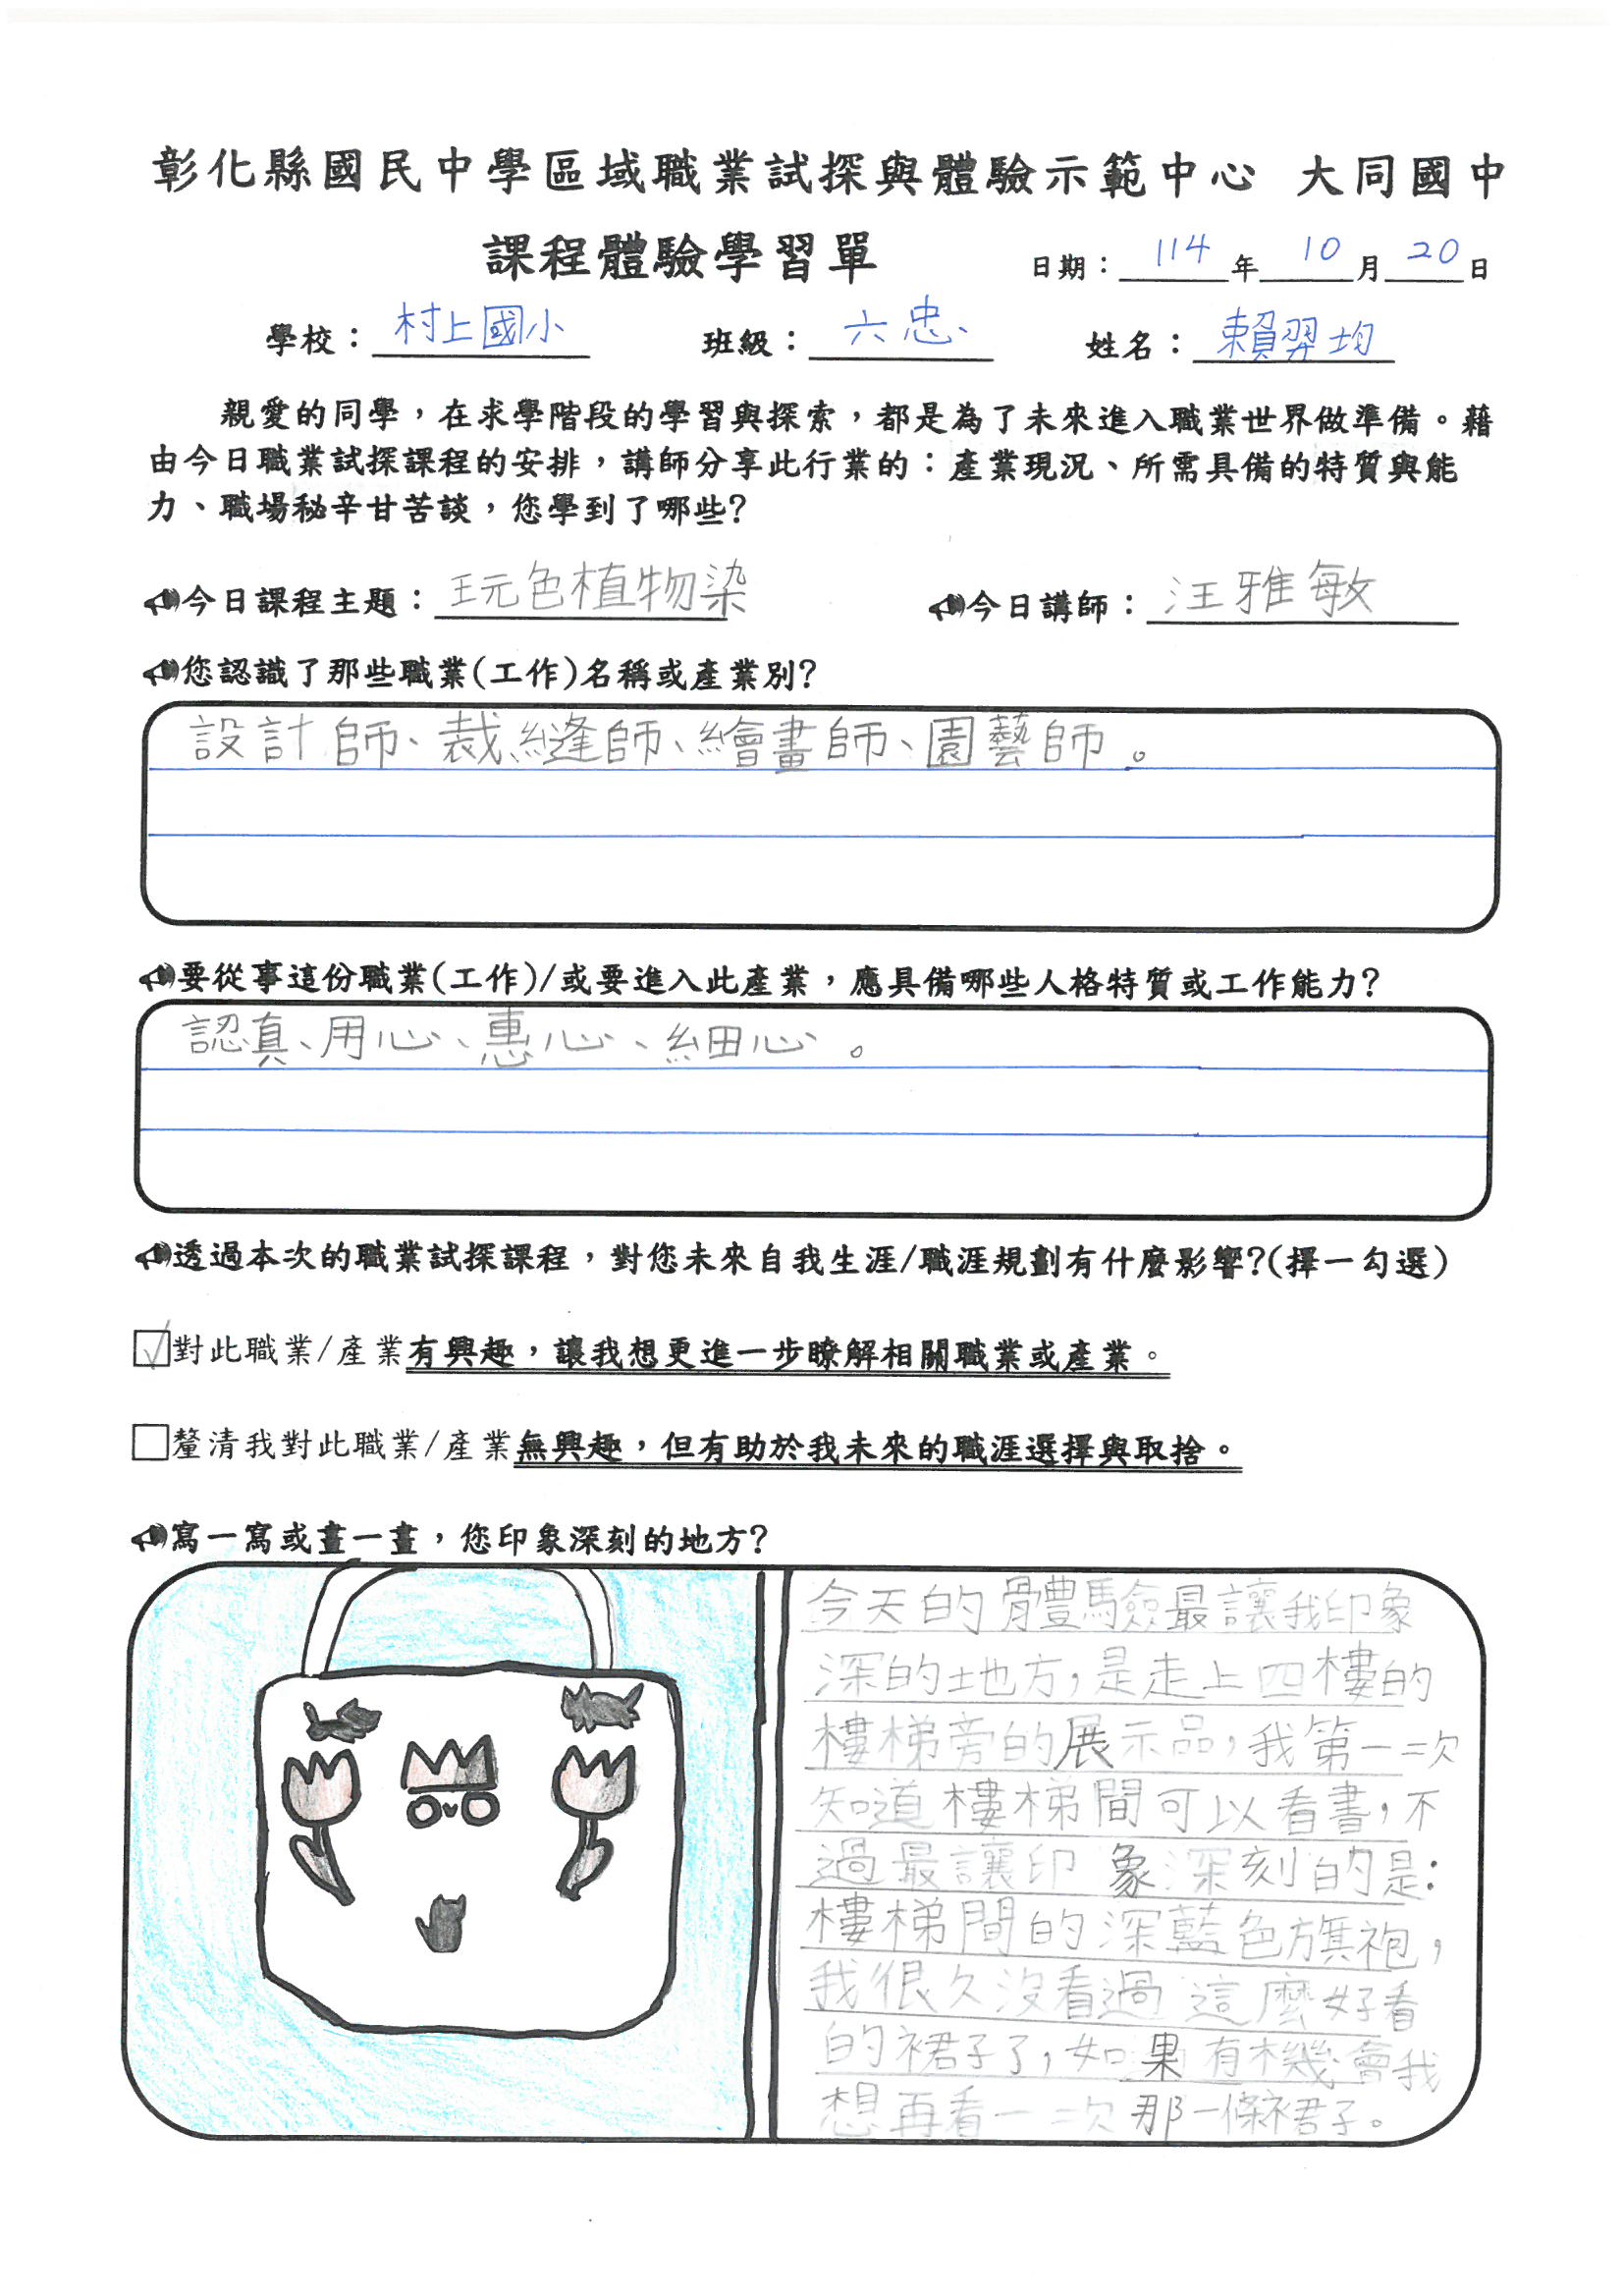 彰化縣國民中學區域職業試探與體驗示範中心 大同國中
課程體驗學習單
日期：114年10月20日
學校：村上國小 班級：六忠 姓名：賴羿均
親愛的同學，在求學階段的學習與探索，都是為了未來進入職業世界做準備。藉
由今日職業試探課程的安排，講師分享此行業的：產業現況、所需具備的特質與能
力、職場秘辛甘苦談，您學到了哪些?
今日課程主題：玩色植物染 今日講師：汪雅敏
您認識了那些職業(工作)名稱或產業別?
設計師、裁縫師、繪畫師、園藝師。
要從事這份職業(工作)/或要進入此產業，應具備哪些人格特質或工作能力?
認真、用心、惠心、細心。
透過本次的職業試探課程，對您未來自我生涯/職涯規劃有什麼影響?(擇一勾選)
☑對此職業/產業有興趣，讓我想更進一步瞭解相關職業或產業。
□釐清我對此職業/產業無興趣，但有助於我未來的職涯選擇與取捨。
寫一寫或畫一畫，您印象深刻的地方?
今天的體驗最讓我印象
深的地方，是走上四樓的
樓梯旁的展示品，我第一次
知道樓梯間可以看書，不
過最讓印象深刻的是：
樓梯間的深藍色旗袍，
我很久沒看過這麼好看
的裙子了，如果有機會我
想再看一次那一條裙子。